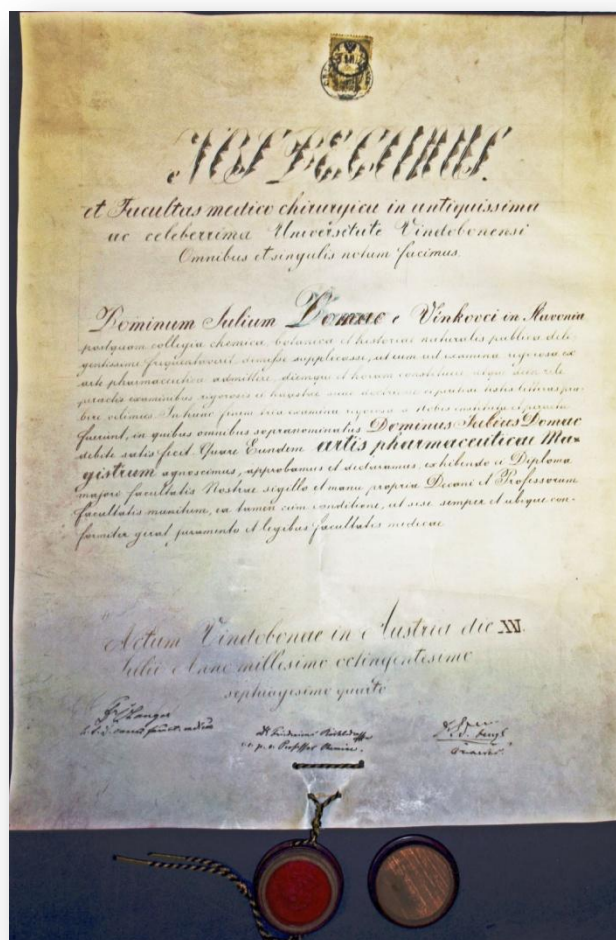 NOS DECANUS
et Facultas medico chirurgica in antiquissima
ac celeberrima Universitate Vindobonensi
Omnibus et singulis notum facimus,
Dominum Julium Domac e Vinkovci in Slavonia
postquam collegia chemica, botanica et historiae naturalis publica dili-
gentissime frequentaverit, demisse supplicasse, ut eum ad examina rigorosa ex
arte pharmaceutica admittere, diemque et horam constituere
peractis examinibus rigorosis testes litteras prae-
bere velimus. In hunc finem examina rigorosa a Nobis instituta et peracta
fuerunt, in quibus omnibus supranominatus Dominus Julius Domac
debite satis fecit. Quare Eundem artis pharmaceuticae Ma-
gistrum agnoscimus, approbamus et declaramus, exhibendo ei Diploma
majore facultatis Nostrae sigillo et manu propria Decani et Professorum
facultatis munitum, ea tamen cum conditione, ut sese semper et ubique con-
formiter gerat juramento et legibus facultatis medicae.
Actum Vindobonae in Austria die XV.
Julii Anno millesimo octingentesimo
septuagesimo quarto